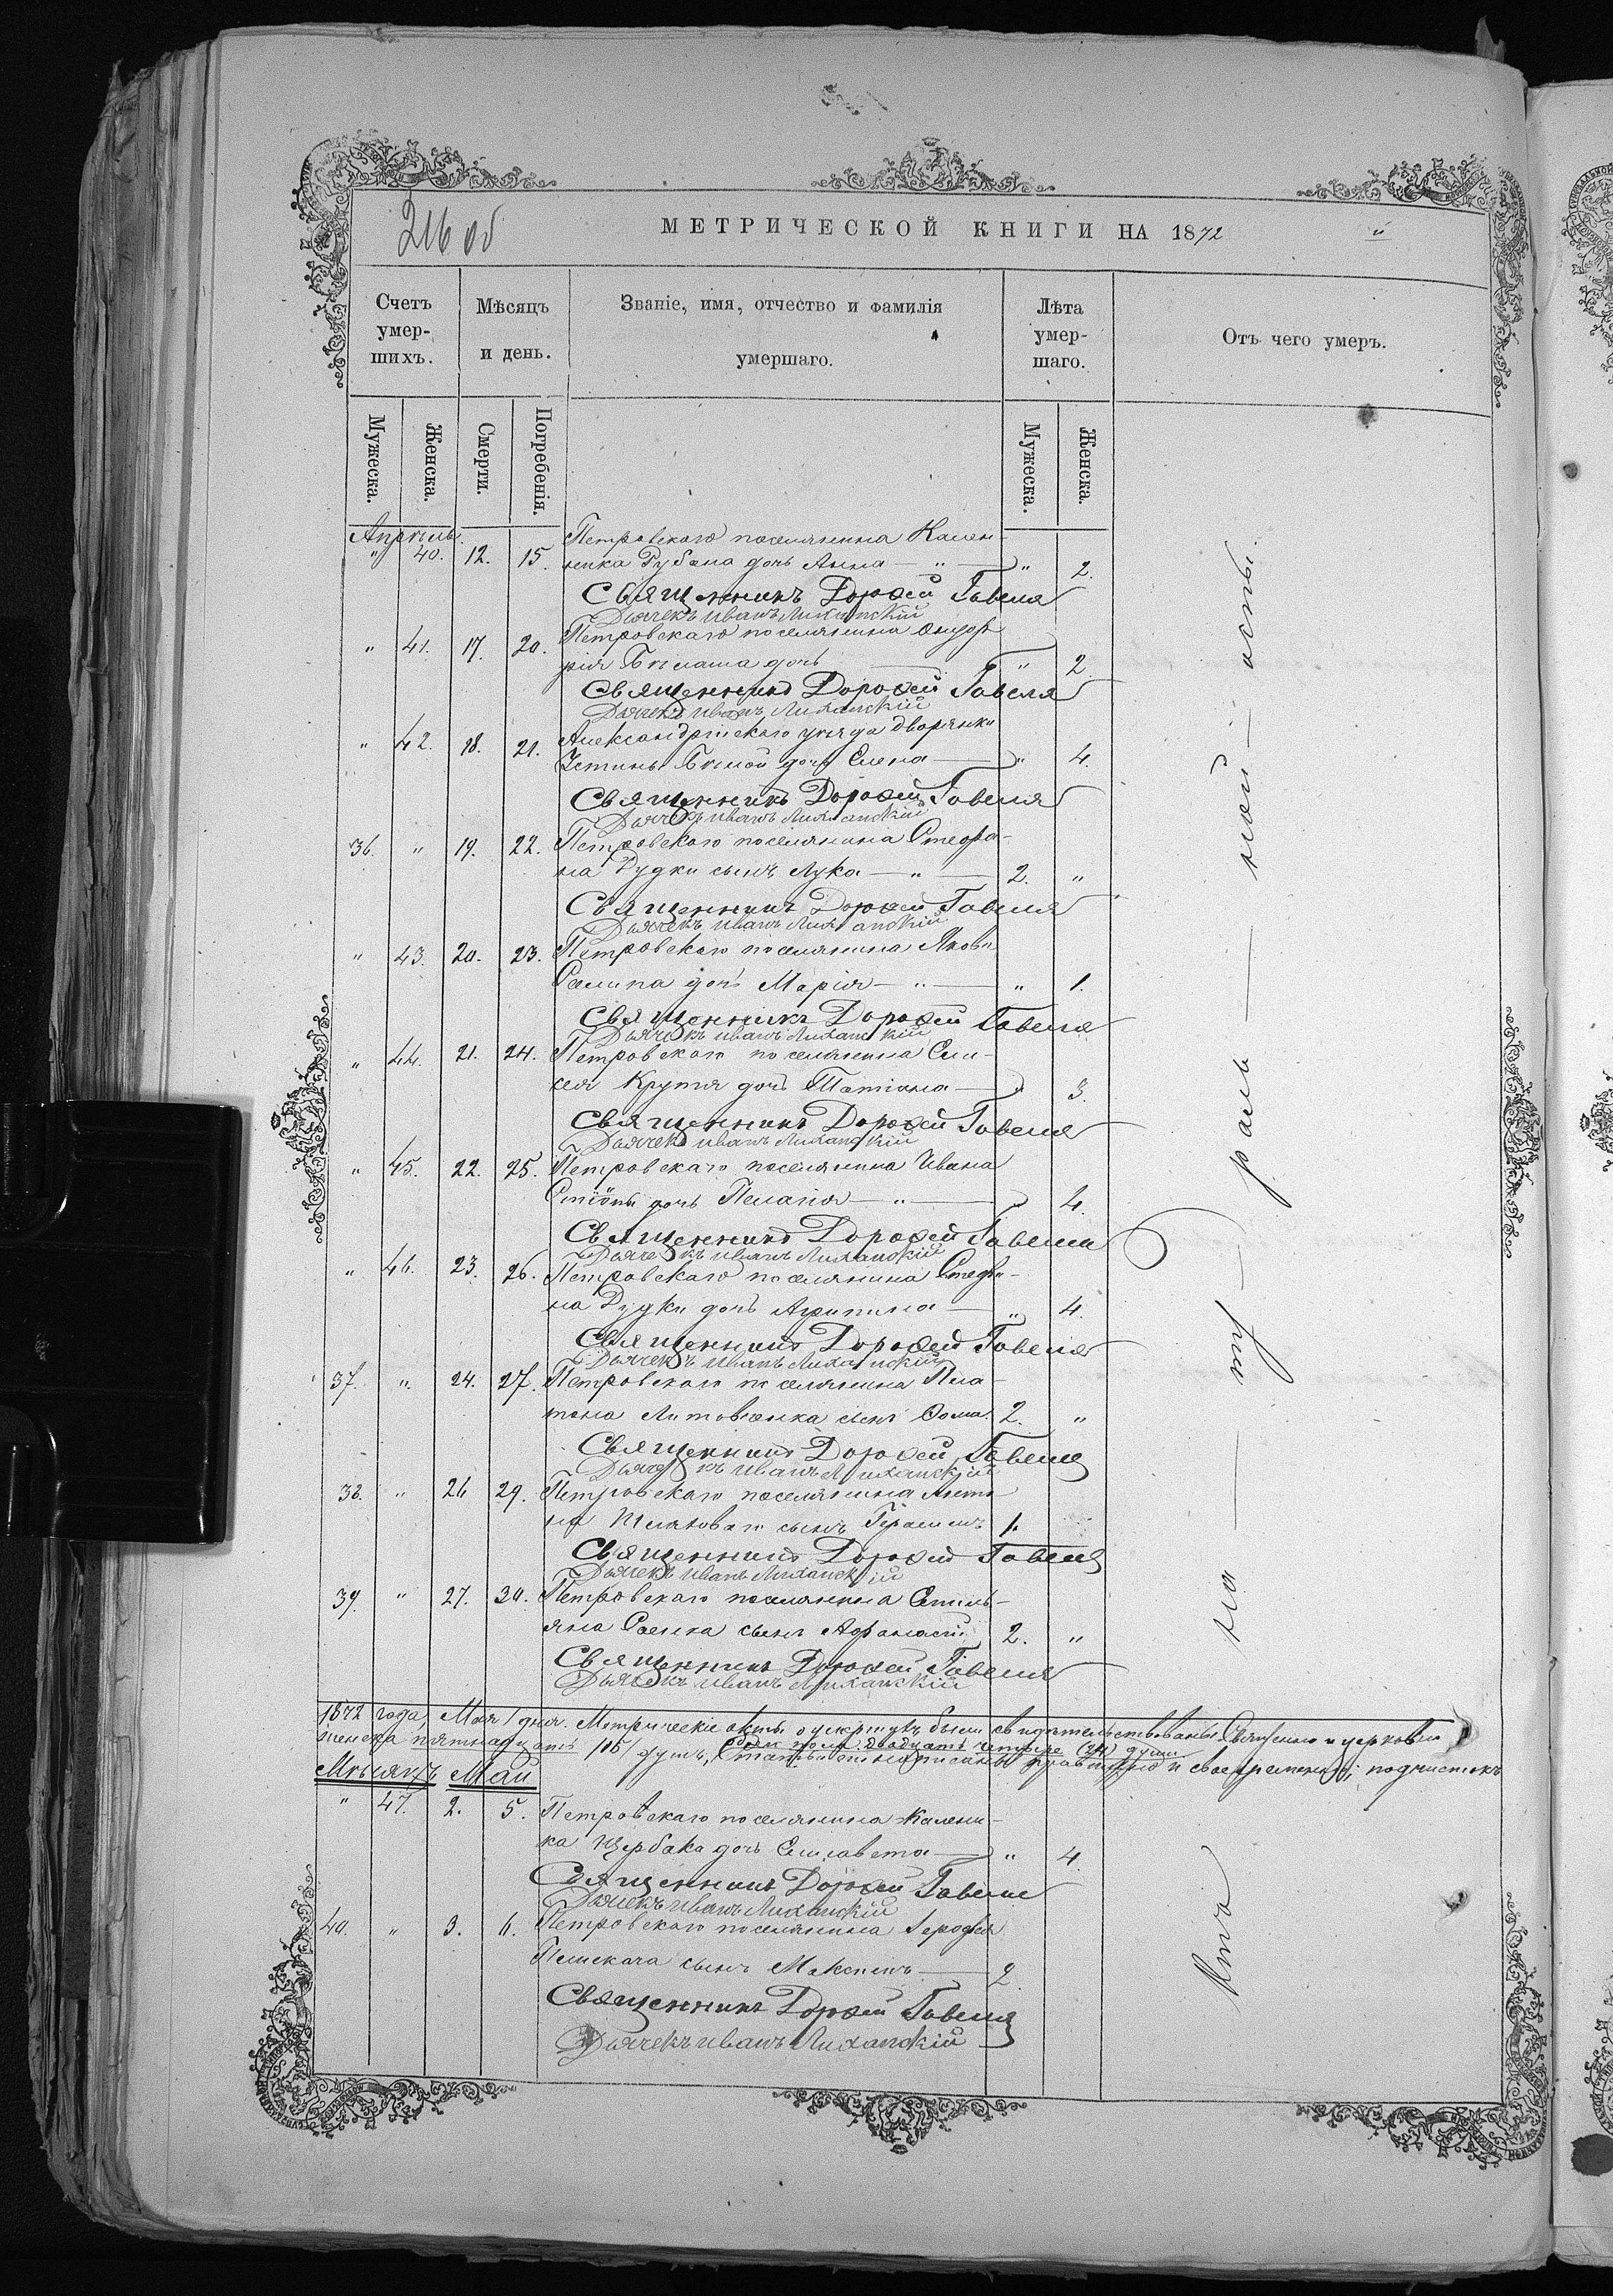 216 об
МЕТРИЧЕСКОЙ КНИГИ НА 1872
Счетъ умер-шихъ.
Мѣсяцъ и день.
Званіе, имя, отчество и фамилія умершаго.
Лѣта умер-шаго.
Отъ чего умеръ.
Мужеска.
Женска.
Смерти.
Погребенія.
Мужеска.
Женска.
Апрѣль.
Петровскаго поселянина Кален-
" 40. 12. 15. ника Рубана дочь Анна — " — " 2.
Священникъ Дорофей Говеля
Дьячекъ Иванъ Лиханскій
" 41. 17. 20. Петровскаго поселянина
Бѣлаша дочь " 2
Священникъ Дорофей Говеля
Дьячекъ Иванъ Лиханскій
" 42. 18. 21. Александрійскаго уѣзда дворянки
Устины Бѣлой дочь Елена — " 4.
Священникъ Дорофей Говеля
Дьячекъ Иванъ Лиханскій
36. " 19. 22. Петровскаго поселянина Стефа-
на Дудки сынъ Лука — " — 2. "
Священникъ Дорофей Говеля
Дьячекъ Иванъ Лиханскій
" 43. 20. 23. Петровскаго поселянина Якова
дочь Марія — " — " 1.
Священникъ Дорофей Говеля
Дьячекъ Иванъ Лиханскій
" 44. 21. 24. Петровскаго поселянина Ели-
сея Крутя дочь Татіана — " 3.
Священникъ Дорофей Говеля
Дьячекъ Иванъ Лиханскій
" 45. 22. 25. Петровскаго поселянина Ивана
дочь Пелагія — " — " 4.
Священникъ Дорофей Говеля
Дьячекъ Иванъ Лиханскій
" 46. 23. 26. Петровскаго поселянина Стефа-
на Дудки дочь Агрипина — " 4.
Священникъ Дорофей Говеля
Дьячекъ Иванъ Лиханскій
37. " 24. 27. Петровскаго поселянина Пла-
тона Литовченка сынъ Фома. 2. "
Священникъ Дорофей Говеля
Дьячекъ Иванъ Лиханскій
38. " 26 29. Петровскаго поселянина Анто-
на сынъ Герасимъ 1.
Священникъ Дорофей Говеля
Дьячекъ Иванъ Лиханскій
39. " 27. 30. Петровскаго поселянина Емиль-
яна Саенка сынъ Афанасій 2. "
Священникъ Дорофей Говеля
Дьячекъ Иванъ Лиханскій
1872 года, Мая 1 дня. Метрическіе акты о умершихъ были свидѣтельствованы Священно и церковно
двадцать четыре (24) души
женска пятнадцать /15/ душъ, Статьи сіи написаны правильно и своевременно; подчистокъ
Мѣсяцъ Май
" 47. 2. 5. Петровскаго поселянина Калени-
ка Щербака дочь Елисавета — " 4.
Священникъ Дорофей Говеля
Дьячекъ Иванъ Лиханскій
40. " 3. 6. Петровскаго поселянина Ерофея
сынъ Максимъ — 2
Священникъ Дорофей Говеля
Дьячекъ Иванъ Лиханскій
ту — раль — ной — оспы.